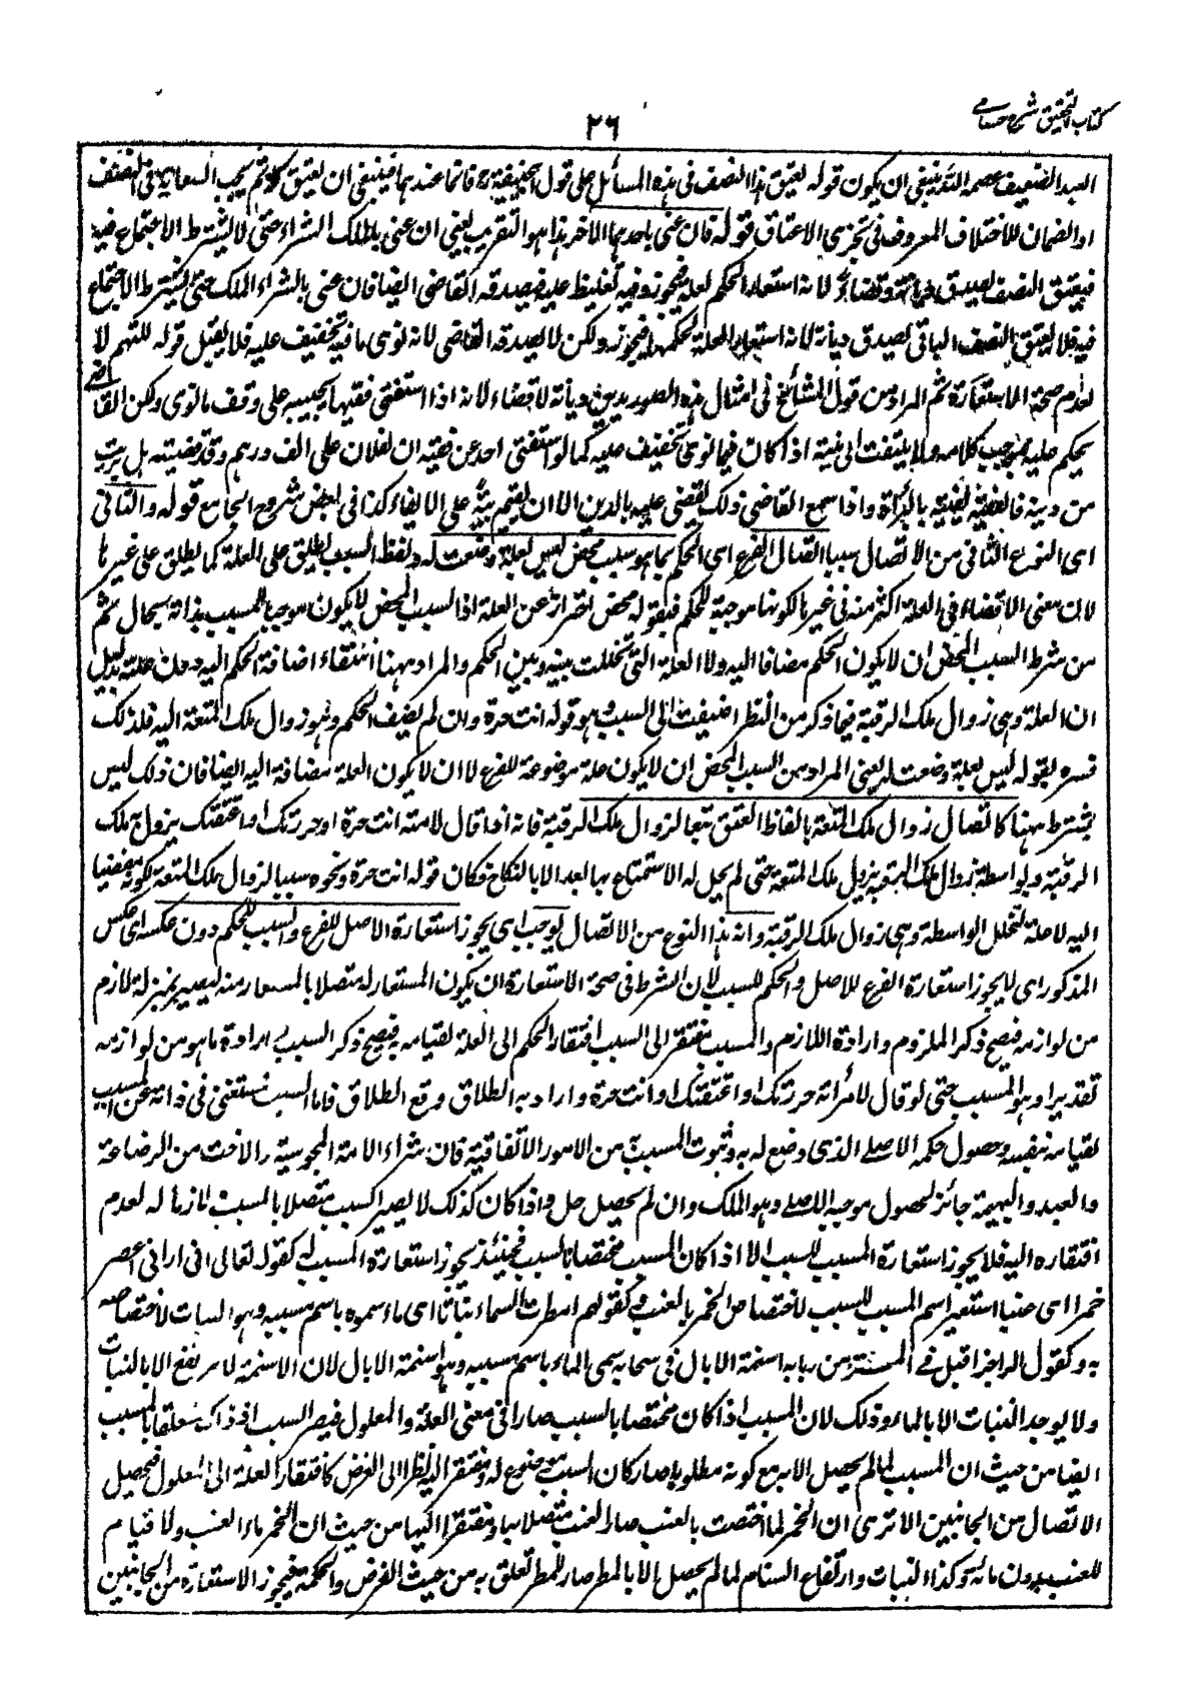 كتاب التحقيق شرح حسامي
٢٦
العبد الضعيف عصمه الله ينبغي ان يكون قوله يعتق هذا النصف في هذه المسائل على قول ابيحنيفة رح فاما عندهما فينبغي ان يعتق كله ثم يجب السعاية في النصف
او الضمان للاختلاف المعروف في تجزي الاعتاق قوله فان عنى باحدهما الاخر هذا هو التقريب يعني ان عنى بالملك الشراء حتى لا يشترط الاجتماع فيه
فيعتق النصف يصدق ديانة وقضاء لانه استعار الحكم لعلته فيجوز وفيه تغليظ عليه فيصدقه القاضي ايضا فان عنى بالشراء الملك حتى يشترط الاجتماع
فيه فلا يعتق النصف الباقي يصدق ديانة لانه استعار العلة لحكمها فيجوز ولكن لا يصدقه القاضي لانه نوى ما فيه تخفيف عليه فلا يقبل قوله للتهمة لا
لعدم صحة الاستعارة ثم المراد من قول المشائخ في امثال هذه الصور يدين ديانة لا قضاء لانه اذا استفتى فقيها يجيبه على وفق ما نوى ولكن القاضي
يحكم عليه بموجب كلامه ولا يلتفت الى نيته اذا كان فيما نوى تخفيف عليه كما لو استفتى احد عن فقيه ان لفلان على الف درهم وقد قضيته هل برئت
من دينه فالفقيه يفتيه بالبراءة واذا سمع القاضي ذلك يقضي عليه بالدين الا ان يقيم بينة على الايفاء كذا في بعض شروح الجامع قوله والثاني
اي النوع الثاني من الاتصال سببا اتصال الفرع اي الحكم بما هو سبب محض ليس بعلة وضعت له ولفظ السبب يطلق على العلة كما يطلق على غيرها
لان معنى الافضاء في العلة اكثر منه في غيرها لكونها موجبة للحكم فبقوله محض احتراز عن العلة اذ السبب المحض لا يكون موجبا للمسبب بذاته بحال ثم
من شرط السبب المحض ان لا يكون الحكم مضافا اليه ولا العلة التي تخللت بينه وبين الحكم والمراد ههنا انتفاء اضافة الحكم اليه دون علته بدليل
ان العلة وهي زوال ملك الرقبة فيما ذكر من النظر اضيفت الى السبب وهو قوله انت حرة وان لم يضف الحكم وهو زوال ملك المتعة اليه فلذلك
فسره بقوله ليس بعلة وضعت له يعني المراد من السبب المحض ان لا يكون علة موضوعة للفرع لا ان لا يكون العلة مضافة اليه ايضا فان ذلك ليس
بشرط ههنا كاتصال زوال ملك المتعة بالفاظ العتق تبعا لزوال ملك الرقبة فانه اذا قال لامته انت حرة او حررتك او اعتقتك يزول به ملك
الرقبة وبواسطة زوال ملك الرقبة يزول ملك المتعة حتى لم يحل له الاستمتاع بها بعد الا بالنكاح فكان قوله انت حرة ونحوه سببا لزوال ملك المتعة لكونه مفضيا
اليه لا علة لتخلل الواسطة وهي زوال ملك الرقبة وانه هذا النوع من الاتصال يوجب اي يجوز استعارة الاصل للفرع والسبب للحكم دون عكسه اي عكس
المذكور اي لا يجوز استعارة الفرع للاصل والحكم للسبب لان الشرط في صحة الاستعارة ان يكون المستعار له متصلا بالمستعار منه ليصير بمنزلة لازم
من لوازمه فيصح ذكر الملزوم وارادة اللازم والمسبب مفتقر الى السبب افتقار الحكم الى العلة لقيامه به فيصح ذكر السبب وارادة ما هو من لوازمه
تقديرا وهو المسبب حتى لو قال لامرأته حررتك او اعتقتك او انت حرة واراد به الطلاق وقع الطلاق فاما السبب فمستغني في ذاته عن المسبب
لقيامه بنفسه وحصول حكمه الاصلي الذي وضع له به وثبوت المسبب به من الامور الاتفاقية فان شراء الامة المجوسية والاخت من الرضاعة
والعبد والبهيمة جائز لحصول موجبه الاصلي وهو الملك وان لم يحصل حل واذا كان كذلك لا يصير السبب متصلا بالمسبب لازما له لعدم
افتقاره اليه فلا يجوز استعارة المسبب للسبب الا اذا كان المسبب مختصا بالسبب فحينئذ يجوز استعارة المسبب له كقوله تعالى اني اراني اعصر
خمرا اي عنبا استعير اسم المسبب للسبب لاختصاص الخمر بالعنب وكقولهم امطرت السماء نباتا اي ماء سموه باسم مسببه وهو النبات لاختصاصه
به وكقول الراجز اقبل في المستن من ربابه اسنمة الابال في سحابه سمى الماء باسم مسببه وهو اسنمة الابال لان الاسنمة لا ترتفع الا بالنبات
ولا يوجد النبات الا بالماء وذلك لان المسبب اذا كان مختصا بالسبب صارا في معنى العلة والمعلول فيصير السبب اذ ذاك متعلقا بالمسبب
ايضا من حيث ان المسبب لما لم يحصل الا به مع كونه مطلوبا صار كان السبب موضوع له ومفتقر اليه نظرا الى الغرض كافتقار العلة الى المعلول فيحصل
الاتصال من الجانبين الا ترى ان الخمر لما اختصت بالعنب صار العنب متصلا بها ومفتقرا اليها من حيث ان الخمر ماء العنب ولا قيام
للعنب بدون مائه وكذا النبات وارتفاع السنام لما لم يحصل الا بالمطر صار للمطر تعلق به من حيث الغرض والحكمة فيجوز الاستعارة من الجانبين